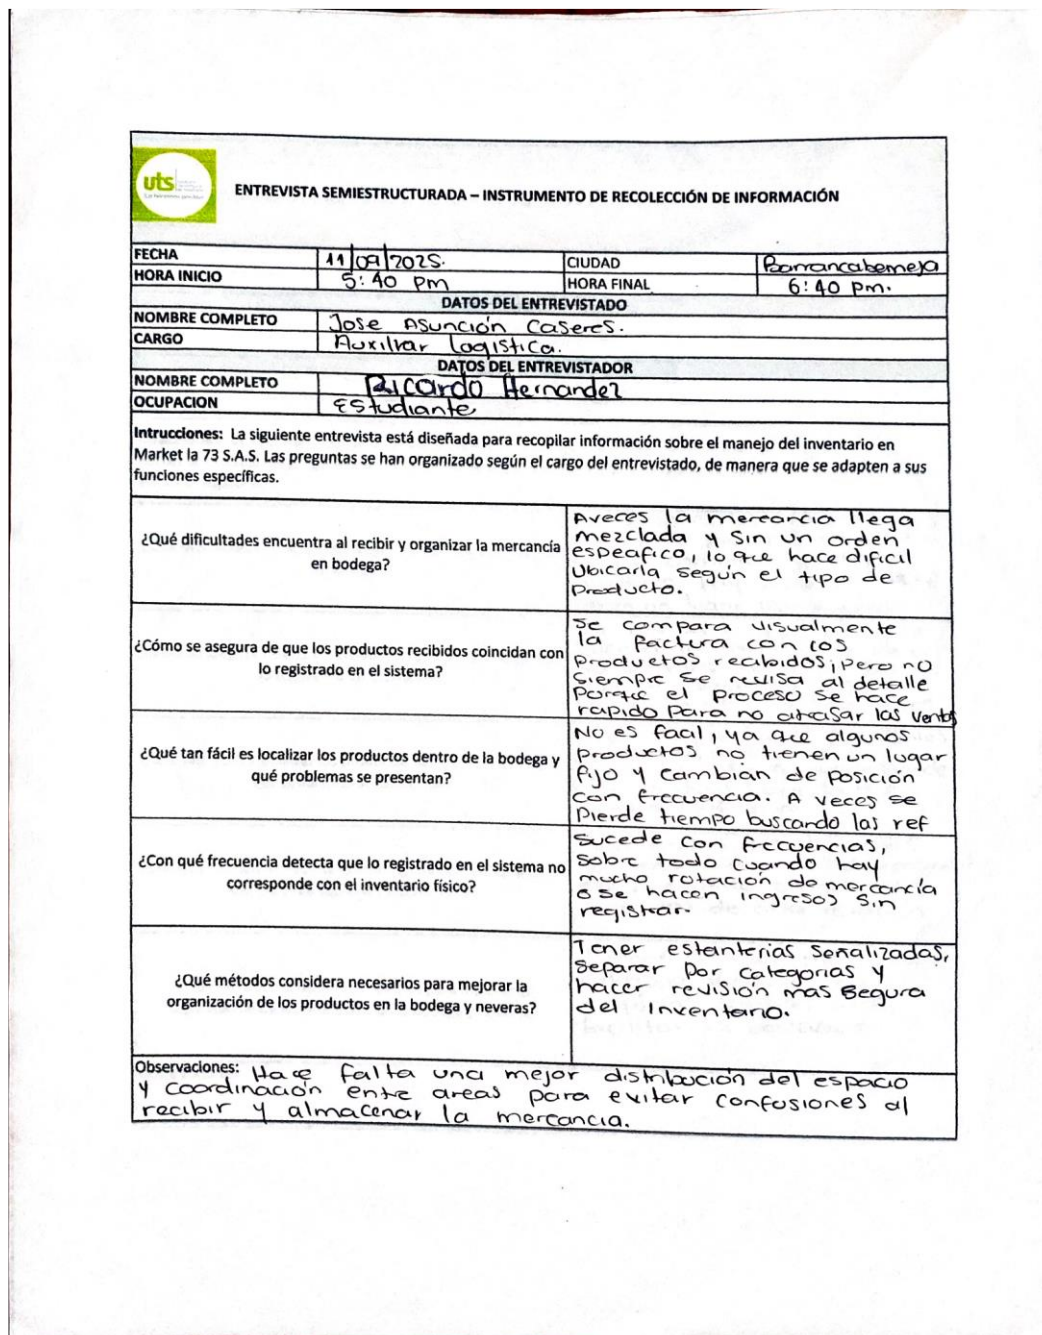 uts
ENTREVISTA SEMIESTRUCTURADA – INSTRUMENTO DE RECOLECCIÓN DE INFORMACIÓN
FECHA 11/09/2025. CIUDAD Barrancabermeja
HORA INICIO 5:40 pm HORA FINAL 6:40 pm.
DATOS DEL ENTREVISTADO
NOMBRE COMPLETO Jose Asunción Caseres.
CARGO Auxiliar Logistica.
DATOS DEL ENTREVISTADOR
NOMBRE COMPLETO Ricardo Hernandez
OCUPACION Estudiante
Intrucciones: La siguiente entrevista está diseñada para recopilar información sobre el manejo del inventario en
Market la 73 S.A.S. Las preguntas se han organizado según el cargo del entrevistado, de manera que se adapten a sus
funciones específicas.
¿Qué dificultades encuentra al recibir y organizar la mercancía
en bodega?
Aveces la mercancia llega
mezclada y sin un orden
especifico, lo que hace dificil
Ubicarla según el tipo de
Producto.
¿Cómo se asegura de que los productos recibidos coincidan con
lo registrado en el sistema?
Se compara visualmente
la factura con los
productos recibidos, pero no
siempre se revisa al detalle
Porque el proceso se hace
rapido para no atrasar las ventas
¿Qué tan fácil es localizar los productos dentro de la bodega y
qué problemas se presentan?
No es facil, ya que algunos
productos no tienen un lugar
fijo y cambian de posición
con frecuencia. A veces se
Pierde tiempo buscando las ref
¿Con qué frecuencia detecta que lo registrado en el sistema no
corresponde con el inventario físico?
Sucede con frecuencias,
sobre todo cuando hay
mucho rotación de mercancía
o se hacen ingresos sin
registrar.
¿Qué métodos considera necesarios para mejorar la
organización de los productos en la bodega y neveras?
Tener estanterias señalizadas,
separar por categorias y
hacer revisión mas segura
del inventario.
Observaciones: Hace falta una mejor distribución del espacio
y coordinación entre areas para evitar confusiones al
recibir y almacenar la mercancia.